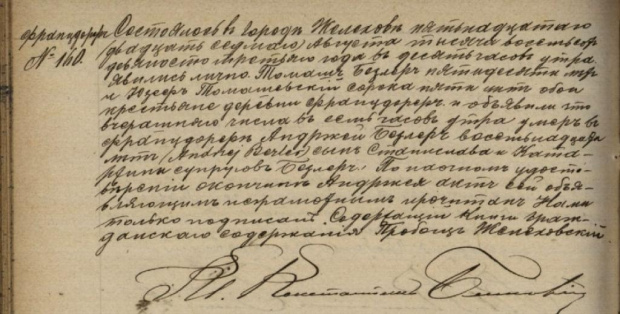 Францдорфъ
№ 160.
Состоялось въ городѣ Желеховѣ пятьнадцатаго
(двадцать седьмаго) Августа тысяча восемьсотъ
девяносто третьяго года въ десять часовъ утра
явились лично Томашъ Безлеръ пятидесяти трехъ
и Іозефъ Томашевскій сорока пяти лѣтъ оба
крестьяне деревни Францдорфъ и объявили что
вчерашняго числа въ семь часовъ утра умеръ въ
Францдорфѣ Андржей Безлеръ восемьнадцати
лѣтъ (Andrzej Bezler) сынъ Станислава и Ката-
ржины супруговъ Безлеръ. По наочномъ удосто-
вѣреніи о кончинѣ Андржея актъ сей объя-
вляющимъ неграмотнымъ прочитанъ Нами
только подписанъ. Содержащій книги граж-
данскаго содержанія Пробощъ Желеховскій
Кс. Константинъ